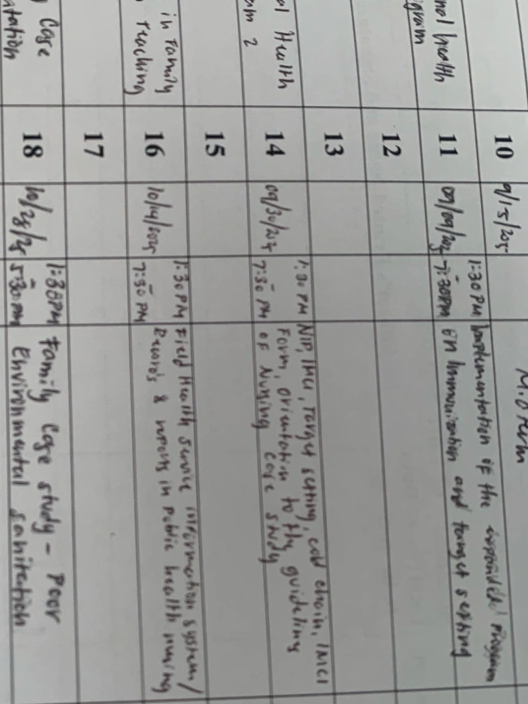 Midterm
nal health
gram
10
9/15/2025
1:30 PM
Implementation of the expanded program
11
09/09/2025
-7:30PM
on Immunization and target setting
12
13
al Health
am 2
14
09/30/2025
1:30 PM
7:30 PM
NIP, IMCI, Target setting, cold chain, IMCI
Form, orientation to the guideline
of Nursing case study
15
in Family
Teaching
16
10/14/2025
1:30 PM
7:30 PM
Field Health service information system/
Records & reports in public health nursing
17
Case
ntation
18
10/28/25
1:30PM
5:30PM
Family Case study - Poor
Environmental sanitation